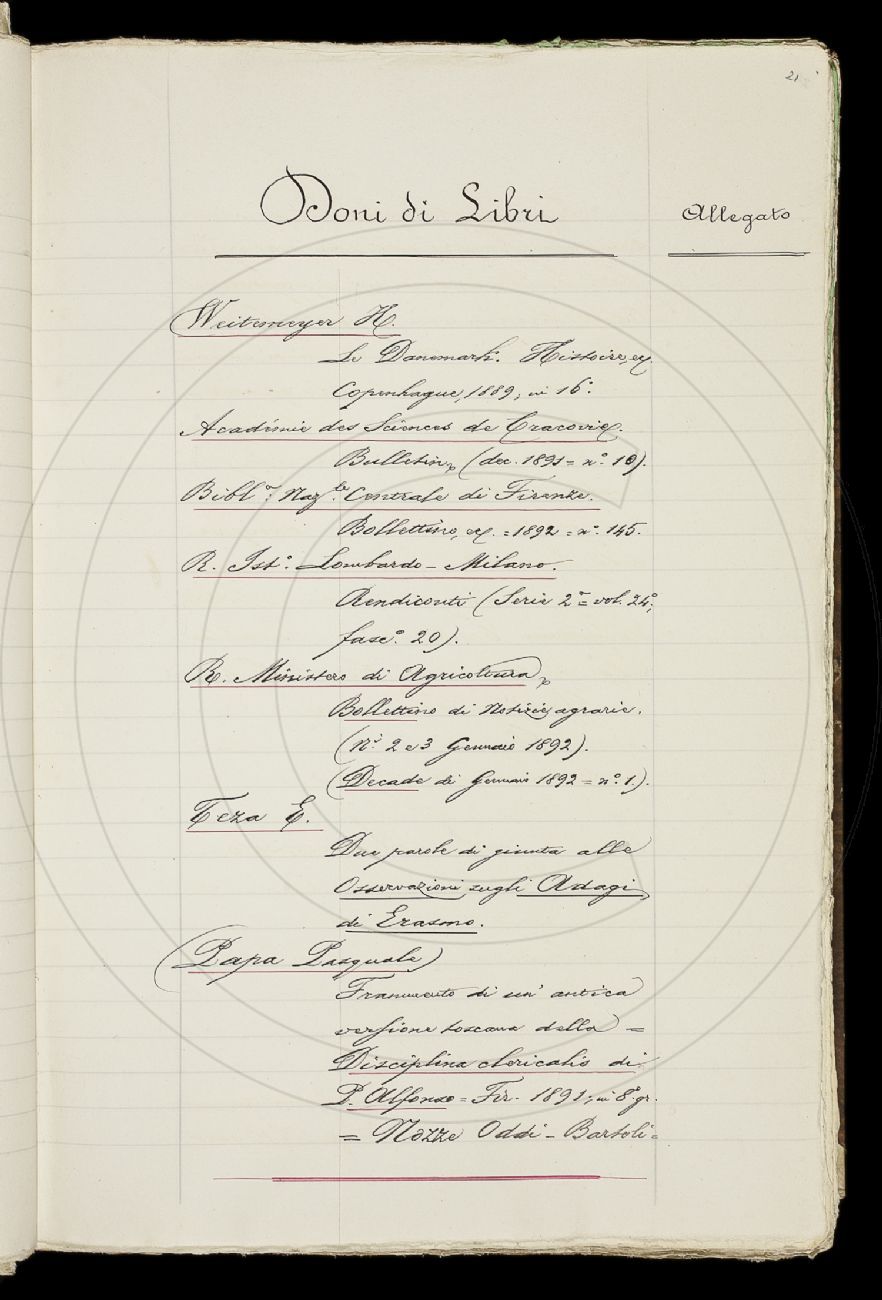 21
Doni di Libri
Allegato
Weitemeyer H.
Le Danemark. Histoire, ec.
Copenhague, 1889, in 16°.
Académie des Sciences de Cracovie.
Bulletin, (déc. 1891 = n°. 10).
Bibl.ª Naz.le Centrale di Firenze.
Bollettino, ec. = 1892 = n°. 145.
R. Ist°. Lombardo - Milano.
Rendiconti (Serie 2ª = vol. 24°,
fasc°. 20).
R. Ministero di Agricoltura,
Bollettino di Notizie agrarie.
(Ni. 2 e 3 Gennaio 1892).
(Decade di Gennaio 1892 = n°. 1.).
Teza E.
Due parole di giunta alle
Osservazioni sugli Adagi
di Erasmo.
(Papa Pasquale)
Frammento di un' antica
versione toscana della =
Disciplina clericalis di
P. Alfonso = Fir. 1891, in 8° gr.
= Nozze Oddi - Bartoli =